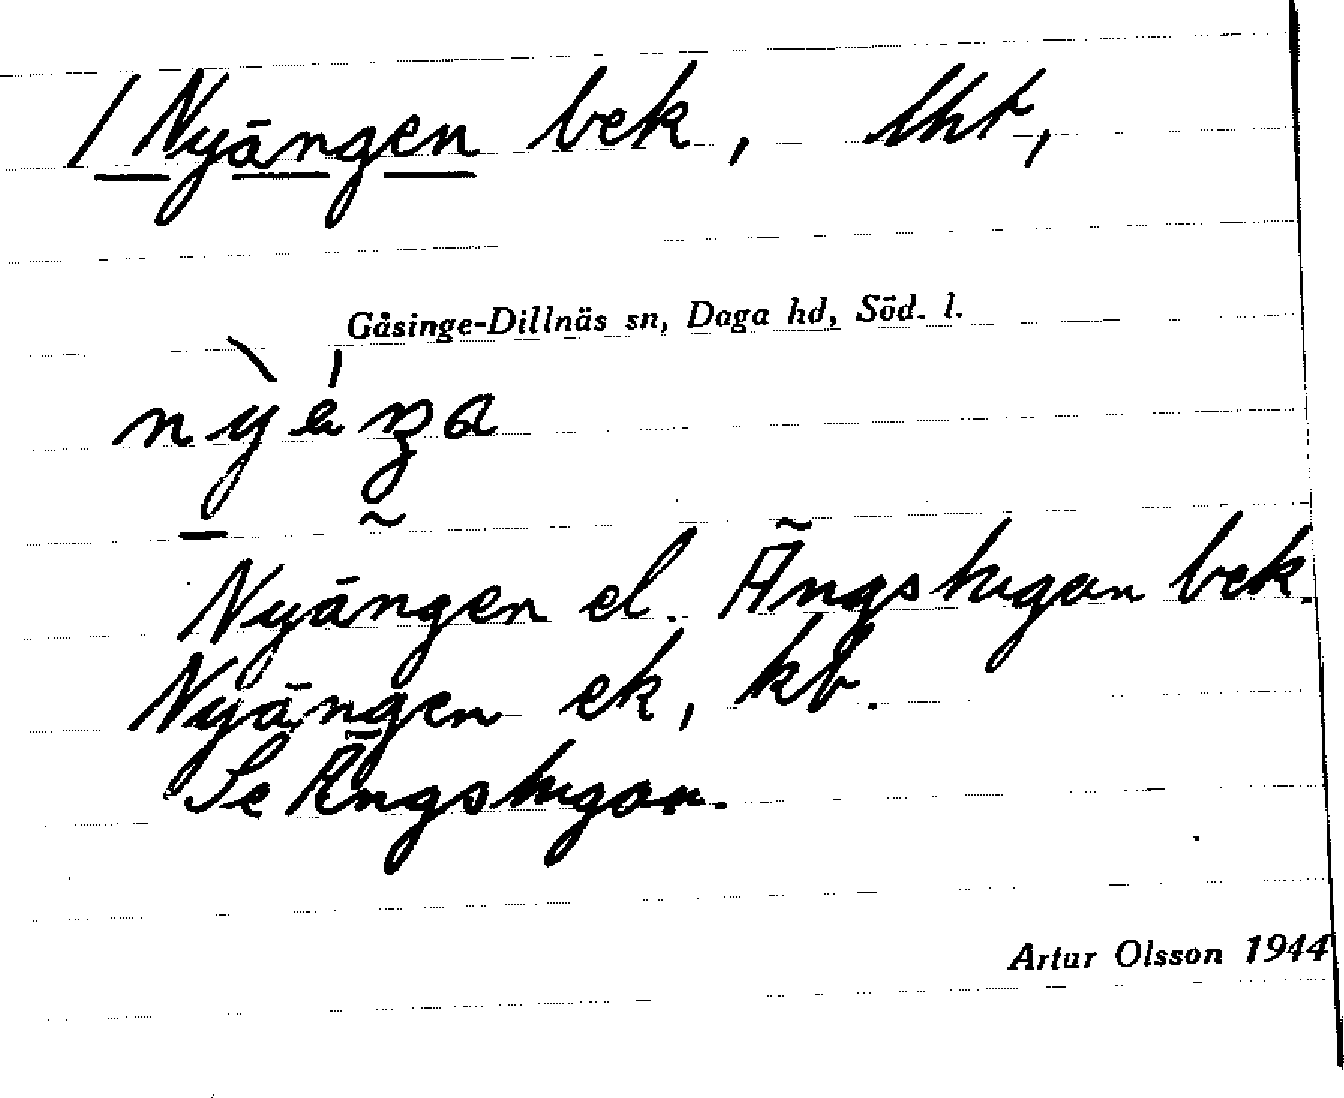 / Nyängen bek, lht,
Gåsinge-Dillnäs sn, Daga hd, Söd. l.
Nyängen el. Ängstugan bek.
Nyängen ek, kb.
Se Ängstugan.
Artur Olsson 1944